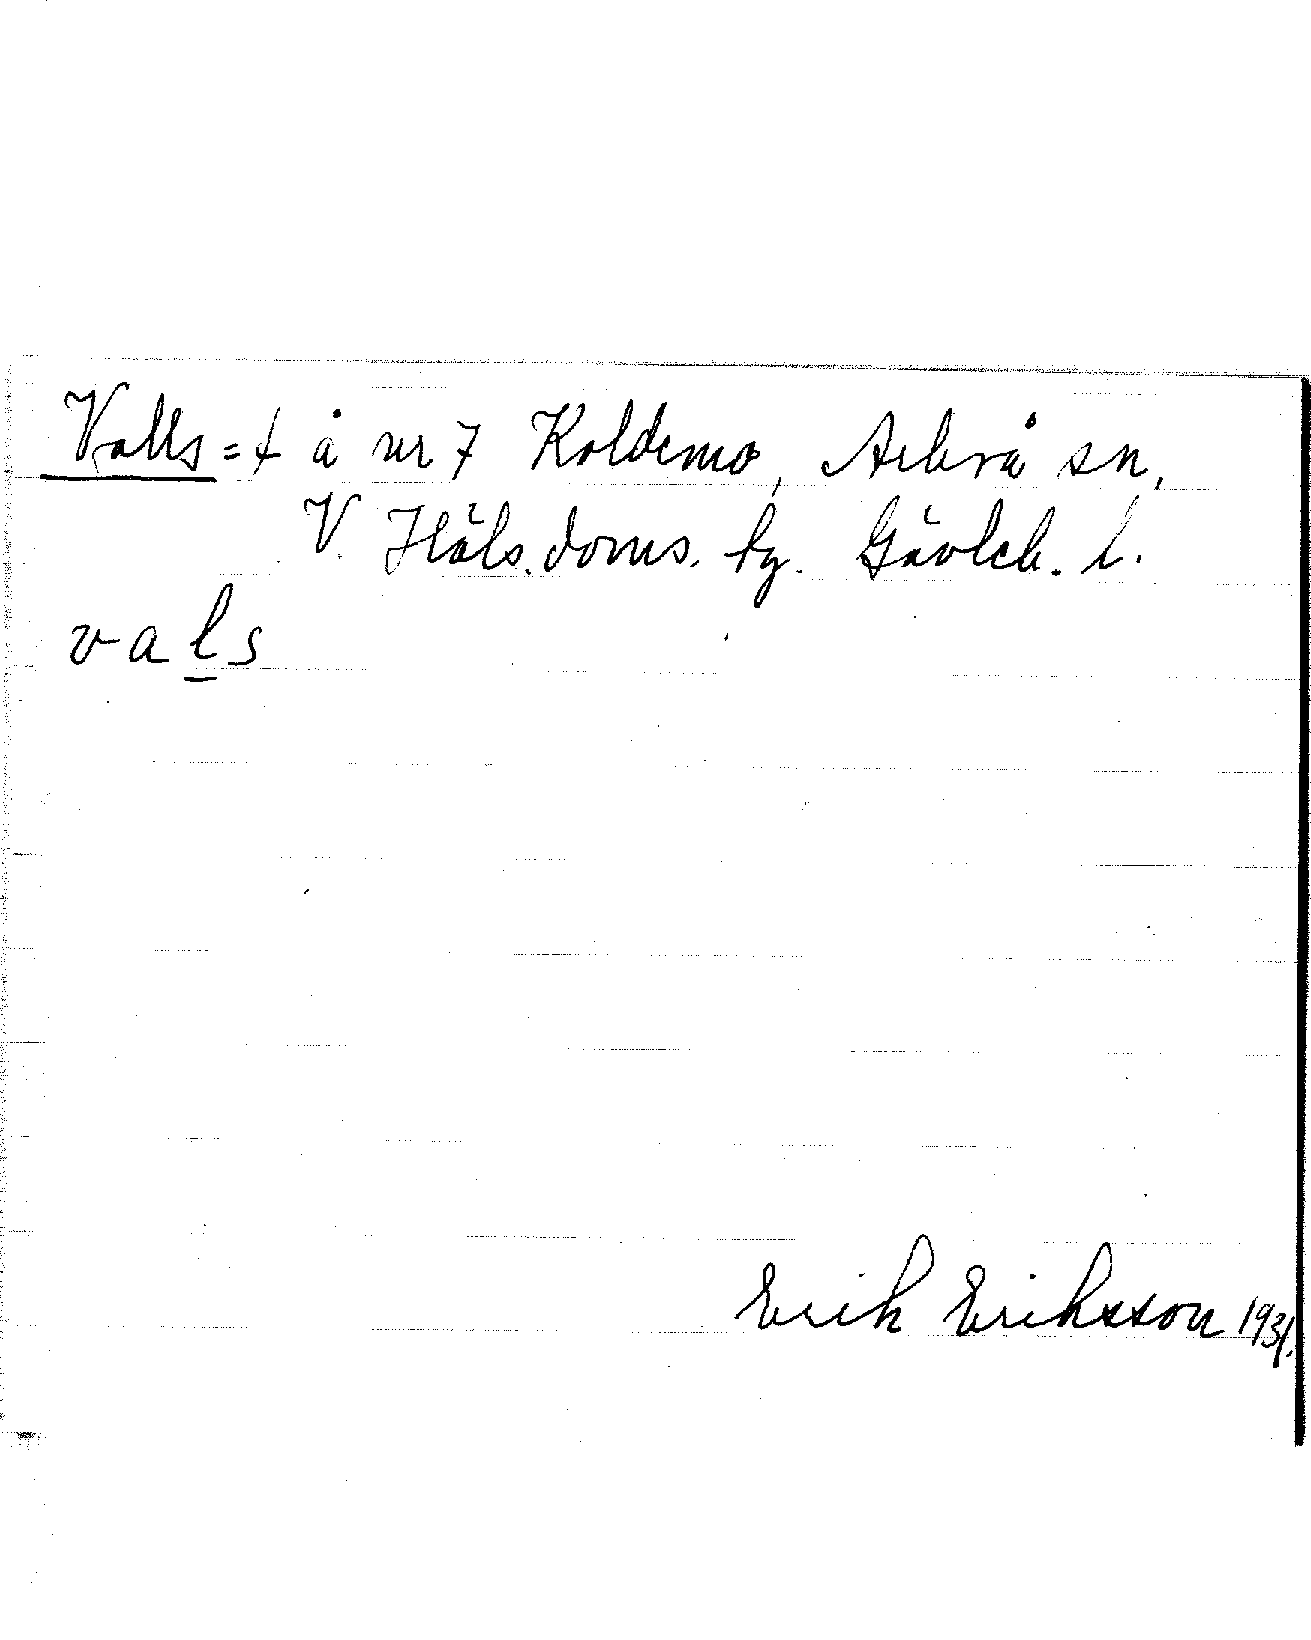 Valls = t å nr 7 Koldemo, Arbrå sn,
V. Häls. doms. tg. Gävleb. l.
vals
Erik Eriksson 1931.